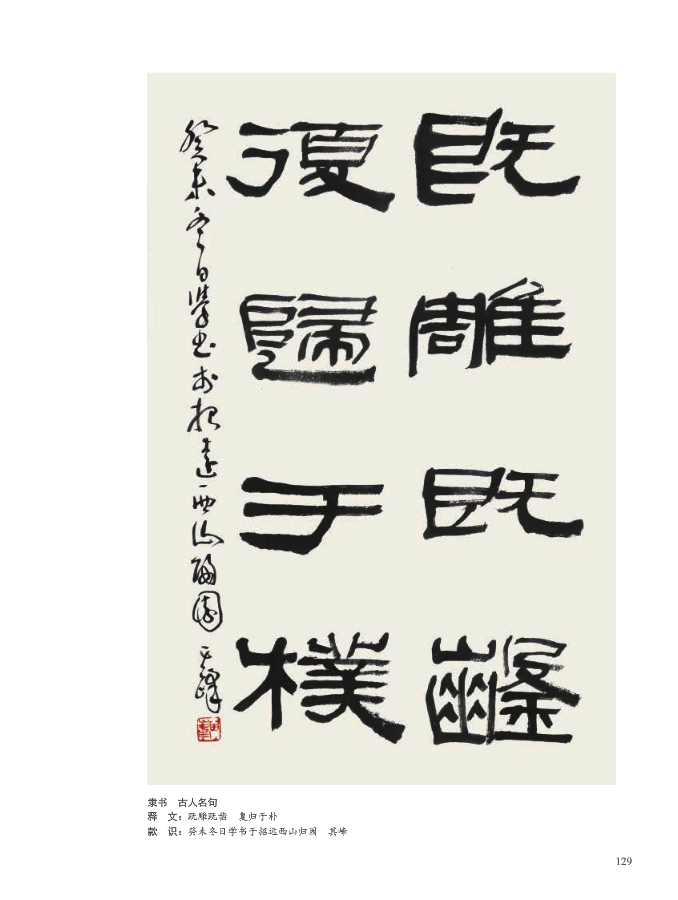 既雕既鑿
復歸于樸
癸未冬日學書於招遠西山歸園 其峰
隶书 古人名句
释 文：既雕既凿 复归于朴
款 识：癸未冬日学书于招远西山归园 其峰
129